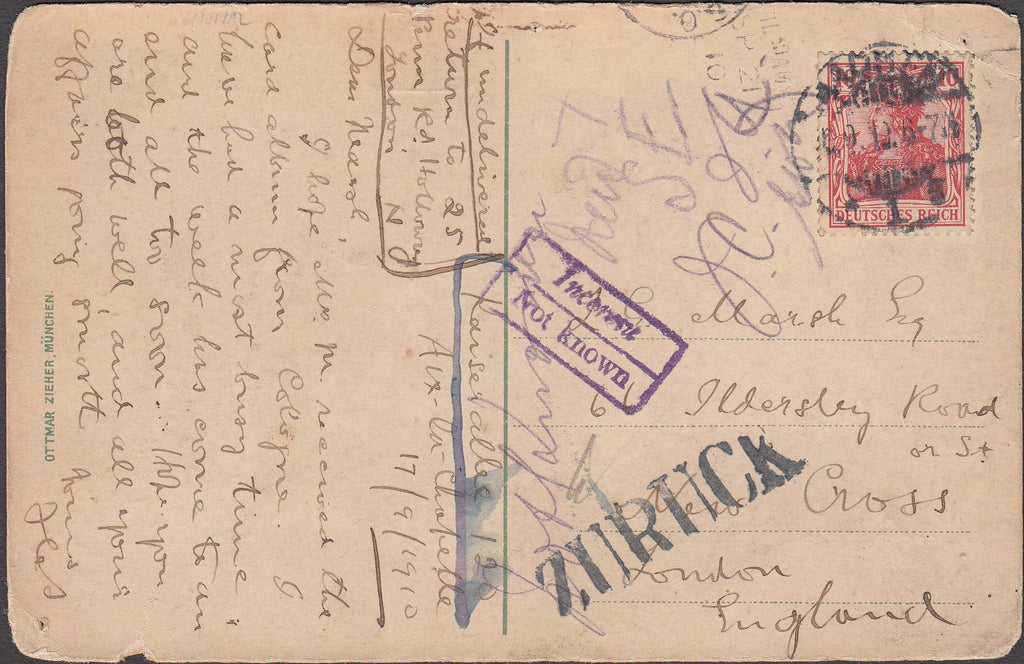 If undelivered
return to 25
Penn Rd Holloway
London N
Pauselallee 126
Aix-la-Chapelle
17/9/1910
Dear Marsh
I hope Mrs M. received the
card album from Cologne. I
have had a most busy time
and the week has come to an
end all too soon. Hope you
are both well, and all yours
going smooth. Yours
OTTMAR ZIEHER, MÜNCHEN.
DEUTSCHES REICH
10
Try
S.E.
Inconnu
Not known
Marsh Esq
6 Ildersley Road
or St
New Cross
London
England
ZURUCK